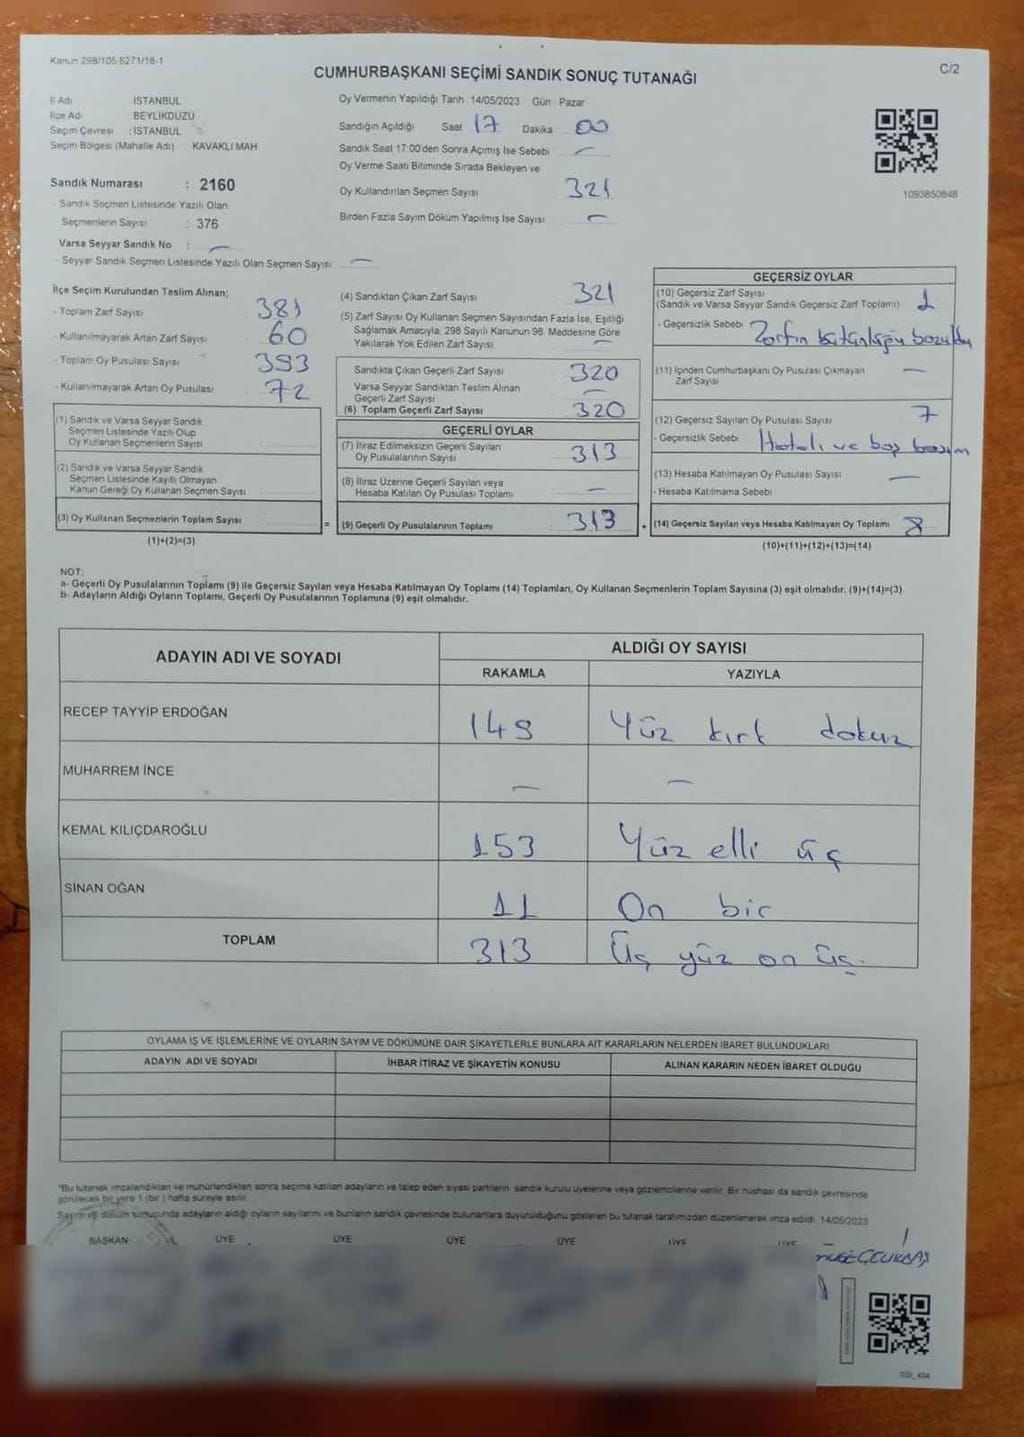 Kanun 298/105.6271/16-1
C/2
CUMHURBAŞKANI SEÇİMİ SANDIK SONUÇ TUTANAĞI
İl Adı İSTANBUL
İlçe Adı BEYLİKDÜZÜ
Seçim Çevresi : İSTANBUL
Seçim Bölgesi (Mahalle Adı) KAVAKLI MAH
Sandık Numarası : 2160
Sandık Seçmen Listesinde Yazılı Olan
Seçmenlerin Sayısı : 376
Varsa Seyyar Sandık No : —
- Seyyar Sandık Seçmen Listesinde Yazılı Olan Seçmen Sayısı —
Oy Vermenin Yapıldığı Tarih :14/05/2023 Gün : Pazar
Sandığın Açıldığı Saat 17 Dakika 00
Sandık Saat 17:00'den Sonra Açımış İse Sebebi —
Oy Verme Saati Bitiminde Sırada Bekleyen ve
Oy Kullandırılan Seçmen Sayısı 321
Birden Fazla Sayım Döküm Yapılmış İse Sayısı —
1093850848
İlçe Seçim Kurulundan Teslim Alınan;
- Toplam Zarf Sayısı 381
- Kullanılmayarak Artan Zarf Sayısı 60
- Toplam Oy Pusulası Sayısı 393
- Kullanılmayarak Artan Oy Pusulası 72
(1) Sandık ve Varsa Seyyar Sandık
Seçmen Listesinde Yazılı Olup
Oy Kullanan Seçmenlerin Sayısı
(2) Sandık ve Varsa Seyyar Sandık
Seçmen Listesinde Kayıtlı Olmayan
Kanun Gereği Oy Kullanan Seçmen Sayısı
(3) Oy Kullanan Seçmenlerin Toplam Sayısı
(1)+(2)=(3)
(4) Sandıktan Çıkan Zarf Sayısı 321
(5) Zarf Sayısı Oy Kullanan Seçmen Sayısından Fazla İse, Eşitliği
Sağlamak Amacıyla, 298 Sayılı Kanunun 98. Maddesine Göre
Yakılarak Yok Edilen Zarf Sayısı —
Sandıkta Çıkan Geçerli Zarf Sayısı 320
Varsa Seyyar Sandıktan Teslim Alınan
Geçerli Zarf Sayısı —
(6) Toplam Geçerli Zarf Sayısı 320
GEÇERLİ OYLAR
(7) İtiraz Edilmeksizin Geçerli Sayılan
Oy Pusulalarının Sayısı 313
(8) İtiraz Üzerine Geçerli Sayılan veya
Hesaba Katılan Oy Pusulası Toplamı —
= (9) Geçerli Oy Pusulalarının Toplamı 313
GEÇERSİZ OYLAR
(10) Geçersiz Zarf Sayısı
(Sandık ve Varsa Seyyar Sandık Geçersiz Zarf Toplamı) 1
- Geçersizlik Sebebi Zarfın bütünlüğü bozuldu
(11) İçinden Cumhurbaşkanı Oy Pusulası Çıkmayan
Zarf Sayısı —
(12) Geçersiz Sayılan Oy Pusulası Sayısı 7
- Geçersizlik Sebebi Hatalı ve boş basım
(13) Hesaba Katılmayan Oy Pusulası Sayısı —
- Hesaba Katılmama Sebebi
+ (14) Geçersiz Sayılan veya Hesaba Katılmayan Oy Toplamı 8
(10)+(11)+(12)+(13)=(14)
NOT:
a- Geçerli Oy Pusulalarının Toplamı (9) ile Geçersiz Sayılan veya Hesaba Katılmayan Oy Toplamı (14) Toplamları, Oy Kullanan Seçmenlerin Toplam Sayısına (3) eşit olmalıdır. (9)+(14)=(3)
b- Adayların Aldığı Oyların Toplamı, Geçerli Oy Pusulalarının Toplamına (9) eşit olmalıdır.
ADAYIN ADI VE SOYADI ALDIĞI OY SAYISI
RAKAMLA YAZIYLA
RECEP TAYYİP ERDOĞAN 149 Yüz kırk dokuz
MUHARREM İNCE — —
KEMAL KILIÇDAROĞLU 153 Yüz elli üç
SİNAN OĞAN 11 On bir
TOPLAM 313 Üç yüz on üç.
OYLAMA İŞ VE İŞLEMLERİNE VE OYLARIN SAYIM VE DÖKÜMÜNE DAİR ŞİKAYETLERLE BUNLARA AİT KARARLARIN NELERDEN İBARET BULUNDUKLARI
ADAYIN ADI VE SOYADI İHBAR İTİRAZ VE ŞİKAYETİN KONUSU ALINAN KARARIN NEDEN İBARET OLDUĞU
"Bu tutanak imzalandıktan ve mühürlendikten sonra seçime katılan adayların ve talep eden siyasi partilerin sandık kurulu üyelerine veya gözlemcilerine verilir. Bir nüshası da sandık çevresinde
görülecek bir yere 1 (bir) hafta süreyle asılır.
Sayım ve döküm sonucunda adayların aldığı oyların sayılarını ve bunların sandık çevresinde bulunanlara duyurulduğunu gösteren bu tutanak tarafımızdan düzenlenerek imza edildi. 14/05/2023
BAŞKAN ÜYE ÜYE ÜYE ÜYE ÜYE ÜYE
ÇELİKBAŞ